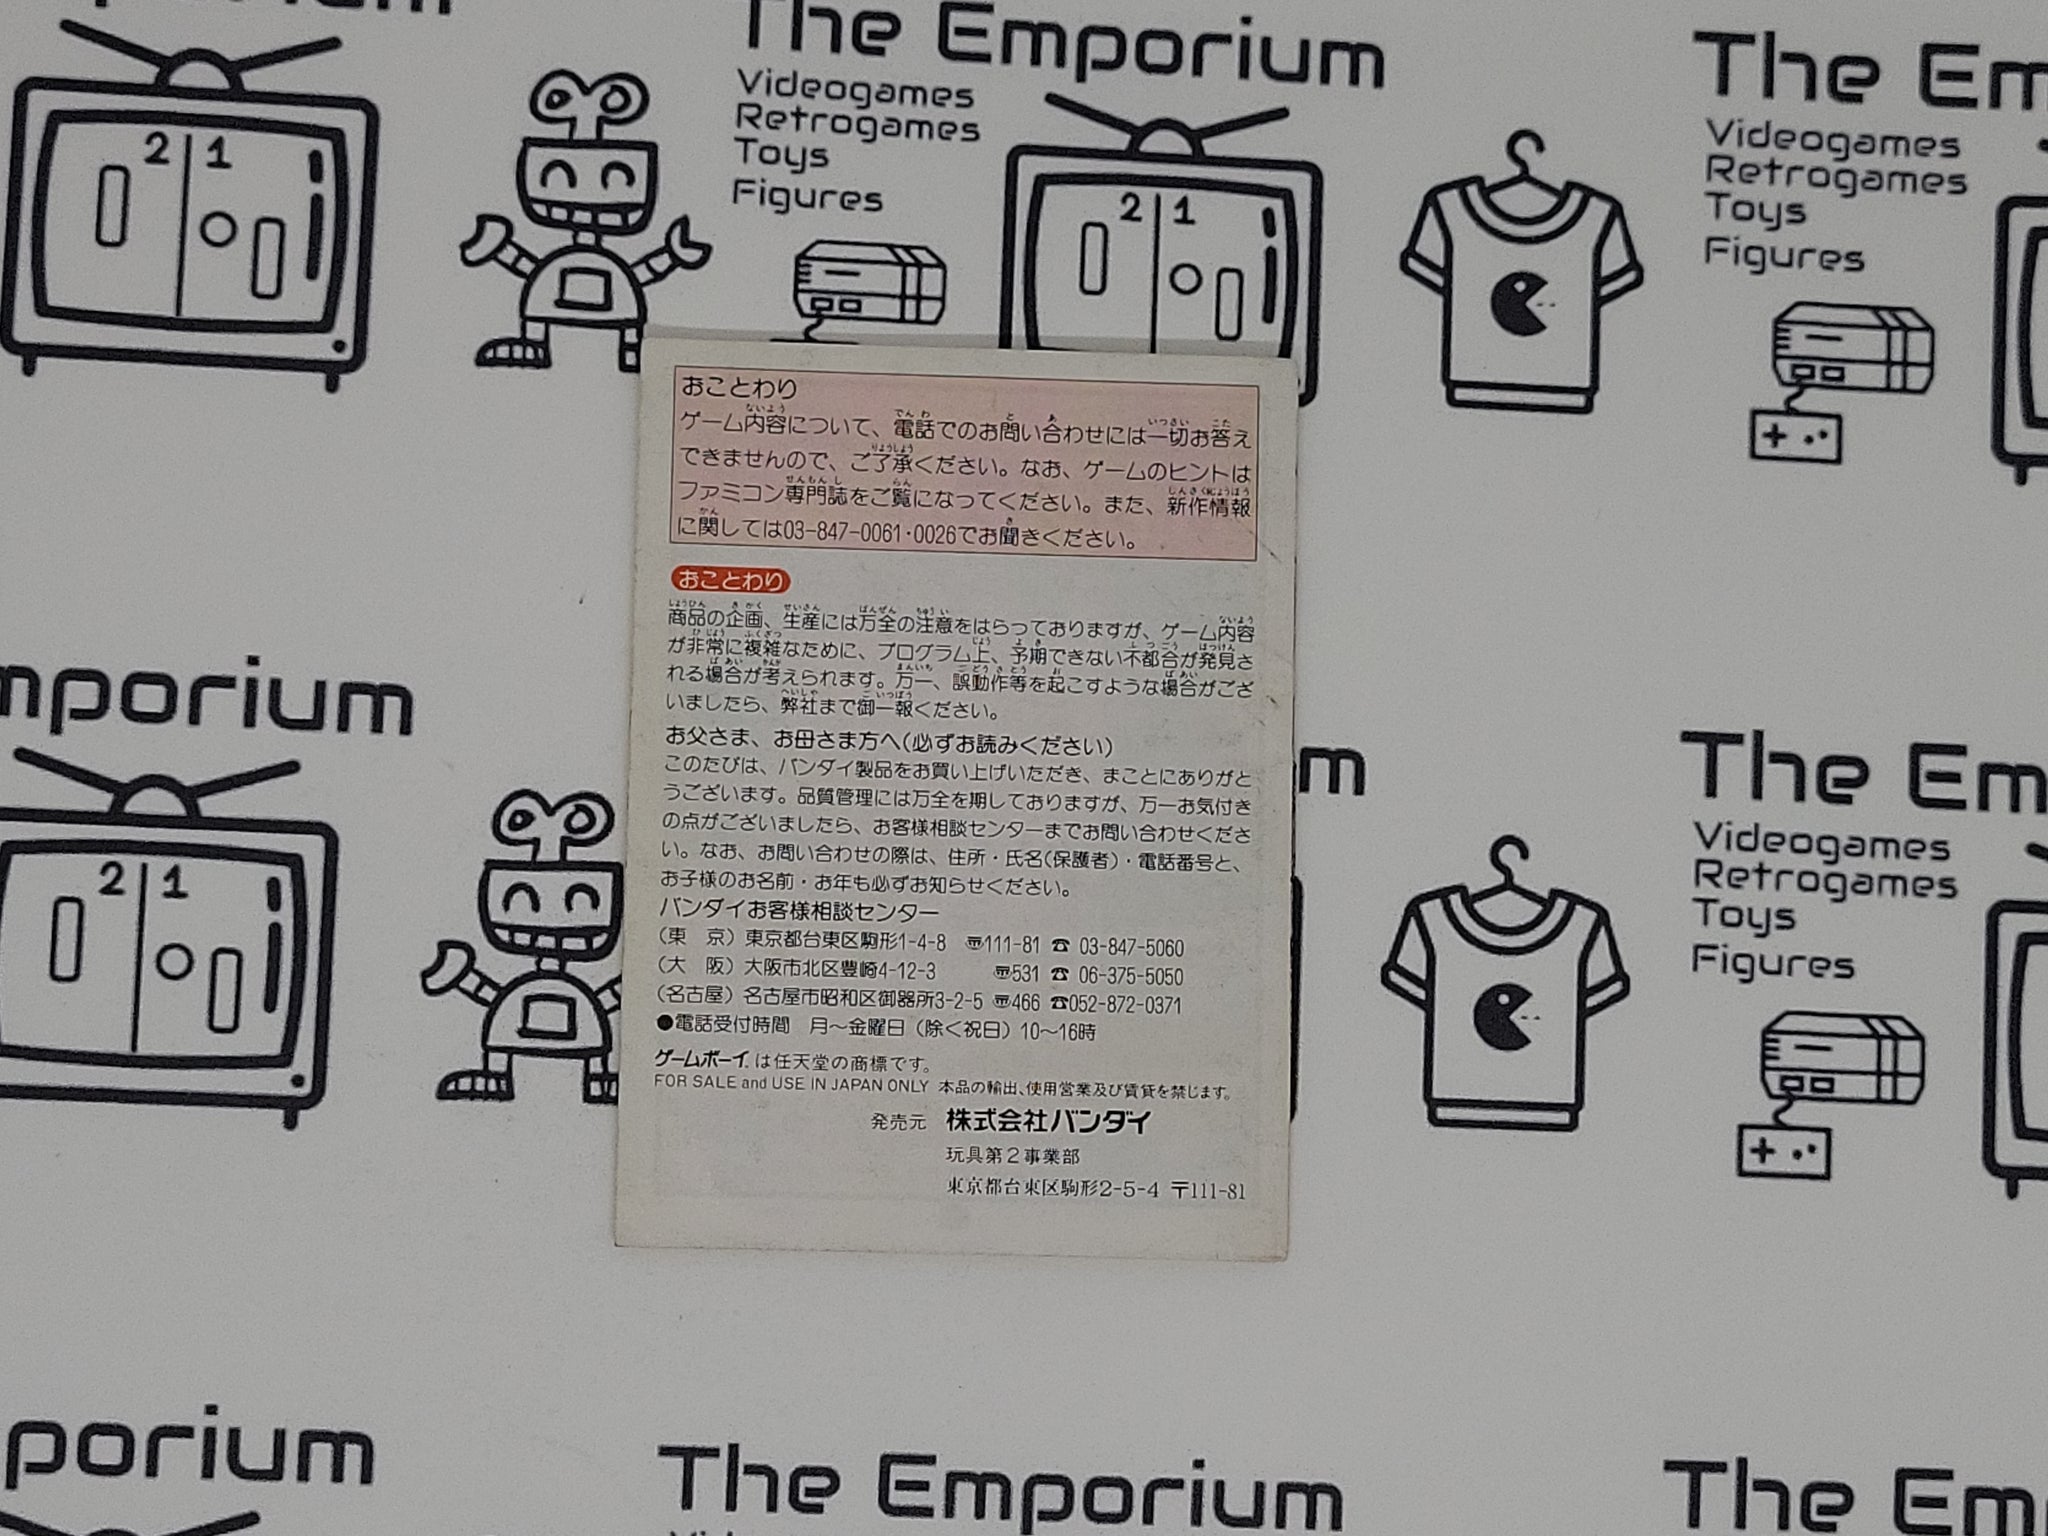 The Emporium
Videogames
Retrogames
Toys
Figures
2 1
2 1
The Em
Videogames
Retrogames
Toys
Figures
おことわり
ゲーム内容について、電話でのお問い合わせには一切お答え
できませんので、ご了承ください。なお、ゲームのヒントは
ファミコン専門誌をご覧になってください。また、新作情報
に関しては03-847-0061・0026でお聞きください。
おことわり
商品の企画、生産には万全の注意をはらっておりますが、ゲーム内容
が非常に複雑なために、プログラム上、予期できない不都合が発見さ
れる場合が考えられます。万一、誤動作等を起こすような場合がござ
いましたら、弊社まで御一報ください。
お父さま、お母さま方へ(必ずお読みください)
このたびは、バンダイ製品をお買い上げいただき、まことにありがと
うございます。品質管理には万全を期しておりますが、万一お気付き
の点がございましたら、お客様相談センターまでお問い合わせくださ
い。なお、お問い合わせの際は、住所・氏名(保護者)・電話番号と、
お子様のお名前・お年も必ずお知らせください。
バンダイお客様相談センター
(東　京) 東京都台東区駒形1-4-8 〠111-81 ☎ 03-847-5060
(大　阪) 大阪市北区豊崎4-12-3 〠531 ☎ 06-375-5050
(名古屋) 名古屋市昭和区御器所3-2-5 〠466 ☎052-872-0371
●電話受付時間　月〜金曜日(除く祝日)10〜16時
ゲームボーイは任天堂の商標です。
FOR SALE and USE IN JAPAN ONLY 本品の輸出、使用営業及び賃貸を禁じます。
発売元 株式会社バンダイ
玩具第2事業部
東京都台東区駒形2-5-4 〒111-81
mporium
2 1
m
The Em
Videogames
Retrogames
Toys
Figures
porium
The Emporium
The Em